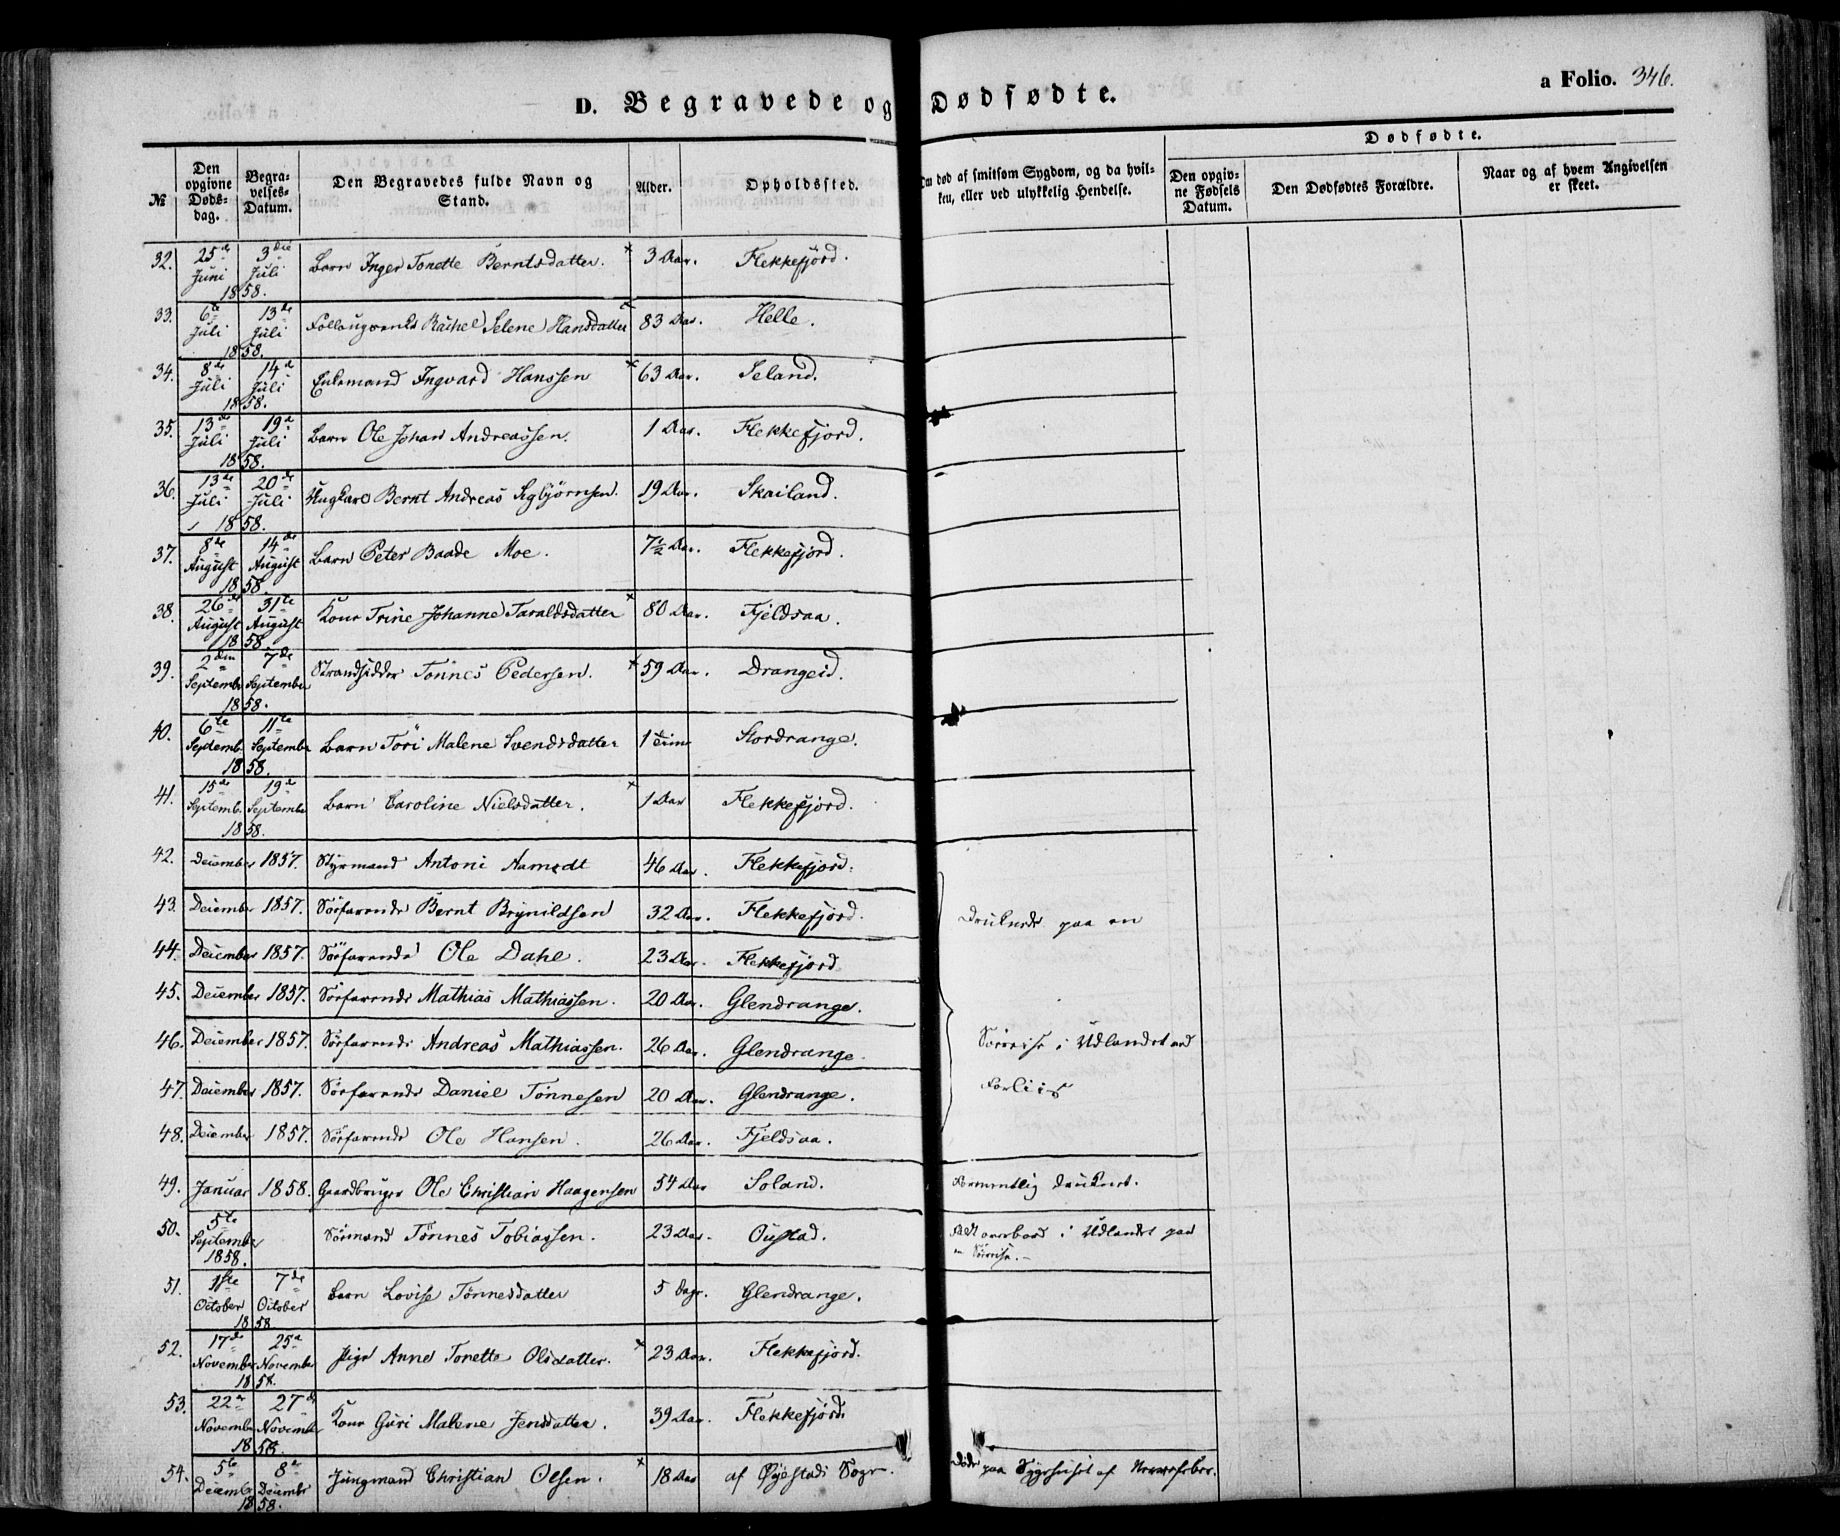 D. Begravede og Dødfødte.
a Folio. 346.
№
Den opgivne Døds-dag.
Begra-velses-Datum.
Den Begravedes fulde Navn og Stand.
Alder.
Opholdssted.
Om død af smitsom Sygdom, og da hvil-ken, eller ved ulykkelig Hendelse.
Dødfødte.
Den opgiv-ne Fødsels Datum.
Den Dødfødtes Forældre.
Naar og af hvem Angivelsen er skeet.
32. 25de Juni 3die Juli 1858. Barn Inger Tonette Berntsdatter. 3 Aar. Flekkefjord.
33. 6te Juli 13de Juli 1858. Rachel Selene Hansdatter 83 Aar. Helle.
34. 8de Juli 14de Juli 1858. Enkemand Ingvard Hanssen 63 Aar. Seland.
35. 13de Juli 19de Juli 1858. Barn Ole Johan Andreassen. 1 Aar. Flekkefjord.
36. 13de Juli 20de Juli 1858. Ungkarl Bernt Andreas Sigbjørnsen. 19 Aar. Skailand.
37. 8de August 14de August 1858. Barn Peter Baade Moe. 7½ Aar. Flekkefjord.
38. 26de August 31te August 1858. Kone Trine Johanne Taraldsdatter 80 Aar. Fjeldsaa.
39. 2den September 7de September 1858. Strandsidder Tönnes Pedersen. 59 Aar. Drangeid.
40. 6te Septemb. 11te September 1858. Barn Tori Malene Svendsdatter 1 Time Stordrange.
41. 15de Septemb. 19de September 1858. Barn Caroline Nielsdatter. 1 Aar Flekkefjord.
42. December 1857. Styrmand Antoni Aamodt 46 Aar. Flekkefjord.
43. December 1857. Söefarende Bernt Brynildsen 32 Aar. Flekkefjord.
44. December 1857. Söefarende Ole Dahl. 23 Aar. Flekkefjord
45. December 1857. Söefarende Mathias Mathiassen. 20 Aar. Glendrange.
46. December 1857. Söefarende Andreas Mathiassen. 26 Aar. Glendrange.
47. December 1857. Söefarende Daniel Tønnesen 20 Aar. Glendrange.
48. December 1857. Söefarende Ole Hansen. 26 Aar. Fjeldsaa.
Druknede paa en
Söereise i Udlandet ved
Forliis
49. Januar 1858. Gaardbruger Ole Christian Haagensen 54 Aar Soland. Formentlig druknet.
50. 5te September 1858. Sömand Tönnes Tobiassen. 23 Aar. Oustad. Faldt overbord i Udlandet paa
en Söreise.-
51. 1ste October 7de October 1858 Barn Lovise Tönnesdatter 5 Dage. Glendrange.
52. 17de November 25de November 1858. Pige Anne Tonette Olsdatter. 23 Aar. Flekkefjord.
53. 22de November 27de November 1858. Kone Guri Malene Jensdatter. 39 Aar. Flekkefjord.
54. 5te Decemb. 8de December 1858. Jungmand Christian Olsen. 18 Aar af Øyestads Sogn. Döde paa Sygehuset af Nervefeber.